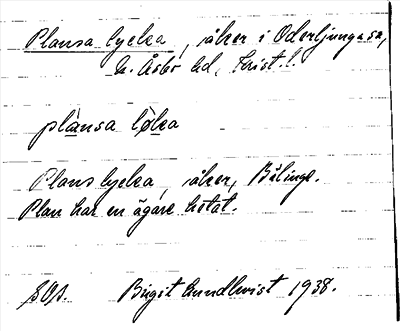 Plansa lycka, åker i Oderljunga sn,
N. Åsbo hd, Krist. l.
plansa løka
Planslycka, åker, Bälinge.
Plan har en ägare hetat.
Birgit Lundkvist 1938.